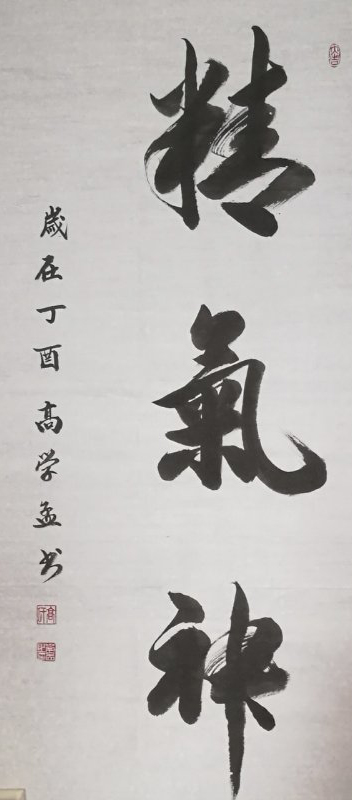 精氣神
歲在丁酉高学孟书